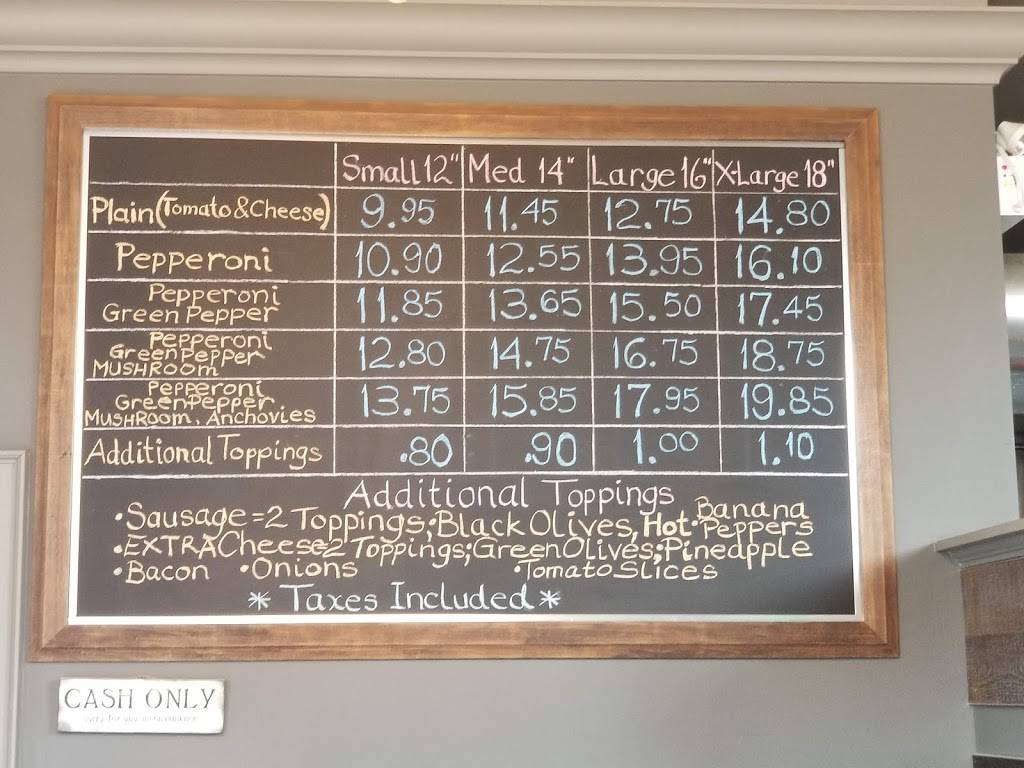 Small 12" Med 14" Large 16" X-Large 18"
Plain (Tomato & Cheese) 9.95 11.45 12.75 14.80
Pepperoni 10.90 12.55 13.95 16.10
Pepperoni
Green Pepper 11.85 13.65 15.50 17.45
Pepperoni
Green Pepper
MUSHROOM 12.80 14.75 16.75 18.75
Pepperoni
Green Pepper
MUSHROOM, Anchovies 13.75 15.85 17.95 19.85
Additional Toppings .80 .90 1.00 1.10
Additional Toppings
•Sausage=2 Toppings; Black Olives, Hot • Banana Peppers
•EXTRA Cheese=2 Toppings; Green Olives; Pineapple
•Bacon •Onions •Tomato Slices
* Taxes Included *
CASH ONLY